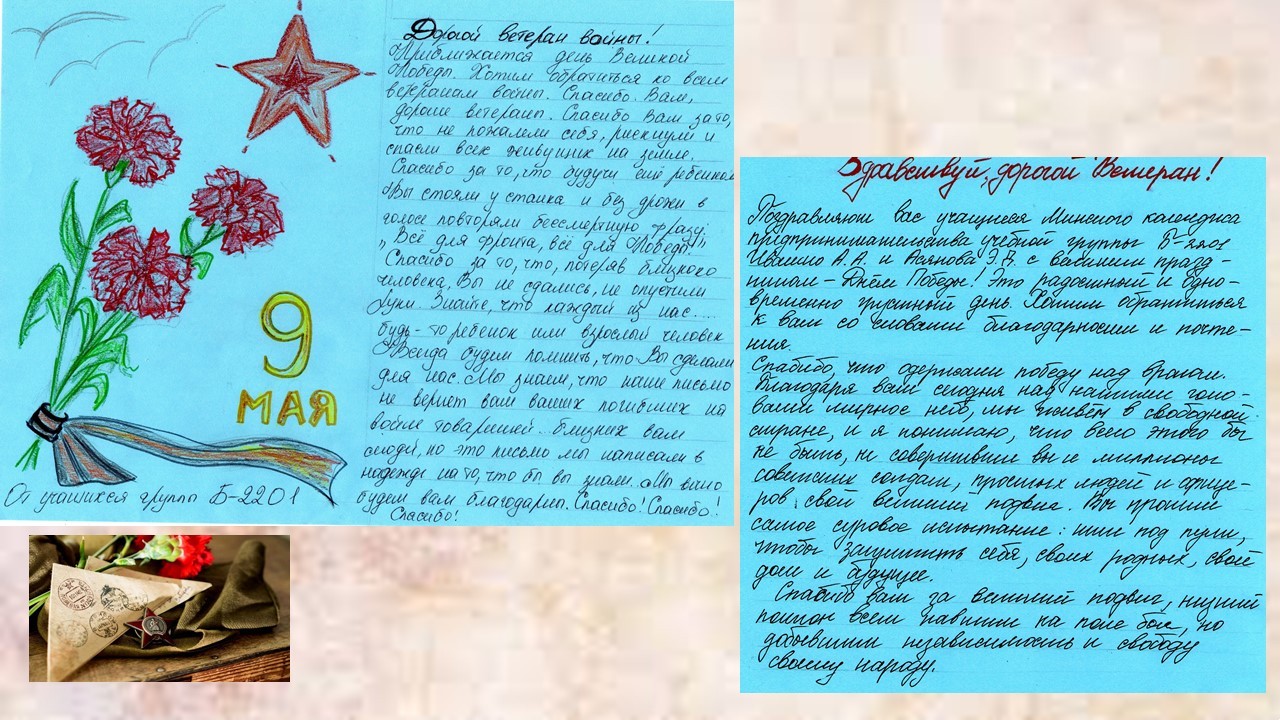 Дорогой ветеран войны!
Приближается день Великой
Победы. Хотим обратиться ко всем
ветеранам войны. Спасибо Вам,
дорогие ветераны. Спасибо Вам за то,
что не пожалели себя, рискнули и
спасли всех живущих на земле.
Спасибо за то, что будучи ещё ребенком
Вы стояли у станка и без дрожи в
голосе повторяли бессмертную фразу:
„Всё для фронта, всё для Победы!"
Спасибо за то, что, потеряв близкого
человека, Вы не сдались, не опустили
руки. Знайте, что каждый из нас....
будь-то ребенок или взрослый человек
Всегда будем помнить, что Вы сделали
для нас. Мы знаем, что наше письмо
не вернет вам ваших погибших на
войне товарищей.. близких вам
людей, но это письмо мы написали в
надежде на то, что бы вы знали. Мы вечно
будем вам благодарны. Спасибо! Спасибо!
Спасибо!
9
МАЯ
От учащихся группы Б-2201
Здравствуй, дорогой Ветеран!
Поздравляют вас учащиеся Минского колледжа
предпринимательства учебной группы Б-2201
и Э.В. с вашим празд-
ником – Днём Победы! Это радостный и одно-
временно грустный день. Хотим обратиться
к вам со словами благодарности и почте-
ния.
Спасибо, что одержали победу над врагом.
Благодаря вам сегодня над нашими голо-
вами мирное небо, мы живём в свободной
стране, и я понимаю, что всего этого бы
не быть, не совершивши вы и миллионы
советских солдат, простых людей и офице-
ров свой великий подвиг. Вы прошли
самое суровое испытание: шли под пули,
чтобы защитить себя, своих родных, свой
дом и будущее.
Спасибо вам за великий подвиг, низкий
поклон всем павшим на поле боя, но
добывшим независимость и свободу
своему народу.